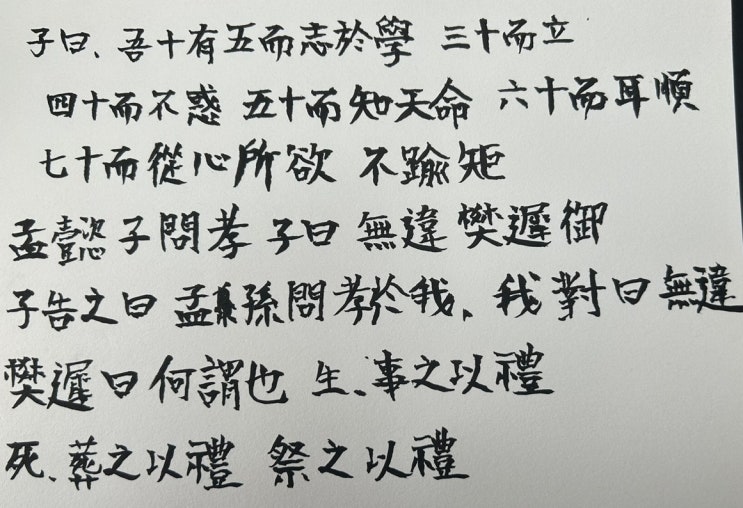 子曰、吾十有五而志於學 三十而立
四十而不惑 五十而知天命 六十而耳順
七十而從心所欲 不踰矩
孟懿子問孝 子曰 無違 樊遲御
子告之曰 孟孫問孝於我、我對曰無違
樊遲曰何謂也 生、事之以禮
死、葬之以禮 祭之以禮